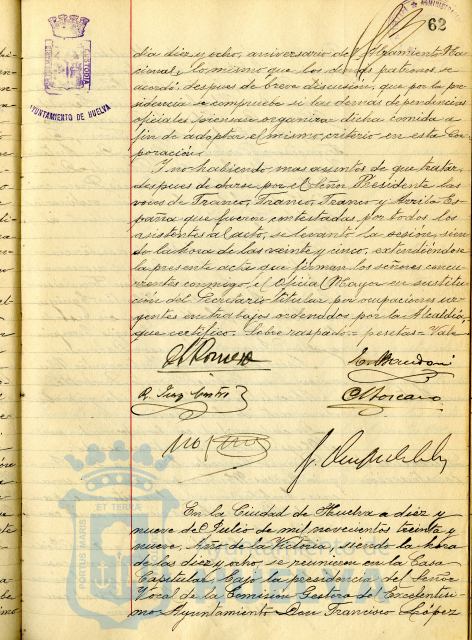 62
AYUNTAMIENTO DE HUELVA
dia diez y ocho, aniversario del Alzamiento Na-
cional, lo mismo que los demas patronos, se
acordó, despues de breve discusion, que por la pre-
sidencia se compruebe si las demas dependencias
oficiales piensan organizar dicha comida a
fin de adoptar el mismo criterio en esta Cor-
poración.
Y no habiendo mas asuntos de que tratar,
despues de darse por el Señor Presidente las
voces de Franco, Franco, Franco y Arriba Es-
paña que fueron contestadas por todos los
asistentes al acto, se levantó la sesión, sien-
do la hora de las veinte y cinco, extendiéndose
la presente acta que firman los señores concu-
rrentes conmigo, el Oficial Mayor en sustitu-
ción del Secretario titular por ocupaciones ur-
gentes en trabajos ordenados por la Alcaldia,
que certifico. Sobre raspado = pesetas = Vale
PORTUS MARIS
ET TERRAE
CUSTODIA
En la Ciudad de Huelva a diez y
nueve de Julio de mil novecientos treinta y
nueve, Año de la Victoria, siendo la hora
de las diez y ocho, se reunieron en la Casa
Capitular, bajo la presidencia del Señor
Vocal de la Comision Gestora del Excelentisi-
mo Ayuntamiento Don Francisco López